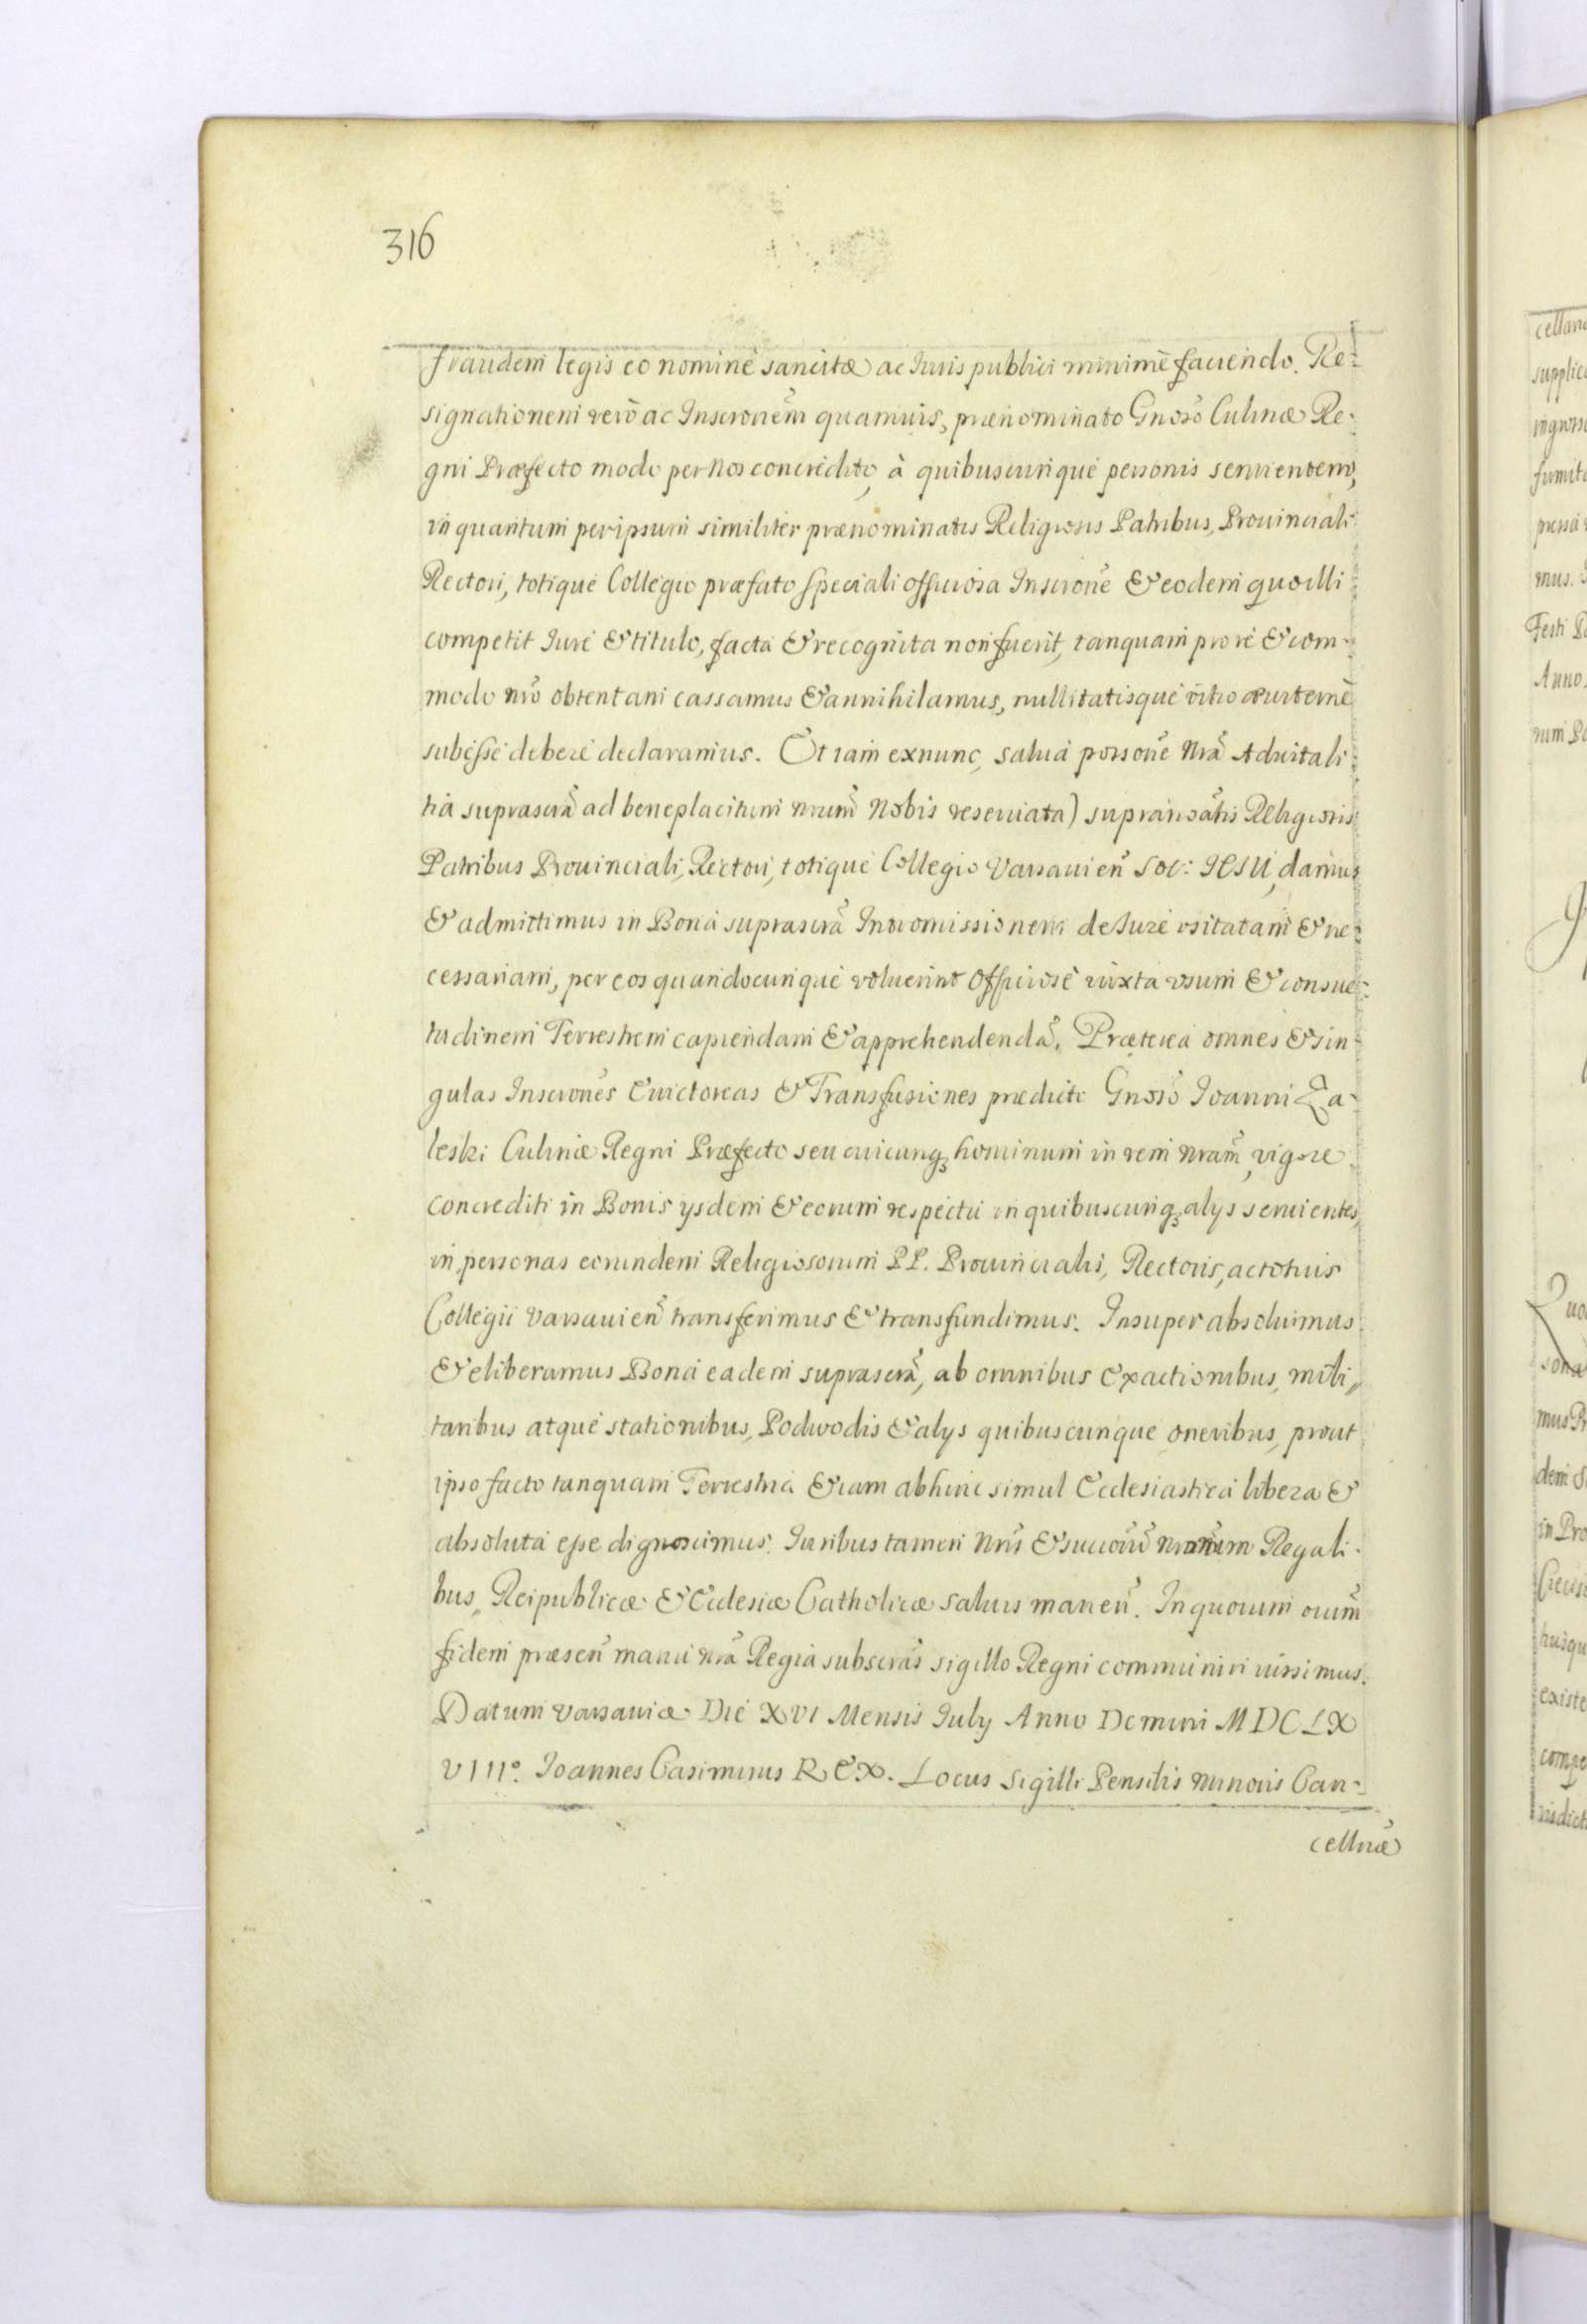 316
fraudem legis eo nomine sancitæ ac Iuris publici minimè faciendo. Re-
signationem verò ac Inscrōnem quamuis, prænominato Gnoso Culinæ Re-
gni Præfecto modo per Nos concredito, à quibuscunque personis seruientem,
in quantum per ipsum similiter prænominatis Religiosis Patribus, Prouinciali
Rectori, totique Collegio præfato speciali officiosa Inscrone & eodem quo illi
competit Iure & titulo, facta & recognita non fuerit, tanquam pro re & com-
modo nro obtentam cassamus & annihilamus, nullitatisque vitio
subesse debere declaramus. Et iam exnunc, salua porsone Nra Aduitali-
tia suprascrã ad beneplacitum nrum Nobis reseruata) Religiosis
Patribus Prouinciali, Rectori, totique Collegio Varsauien Soc: IESU, damus
& admittimus in Bona suprascrã Intromissionem de Iure vsitatam & ne-
cessariam, per eos quandocunque voluerint officiose iuxta vsum & consue-
tudinem Terrestrem capiendam & apprehendendã. Præterea omnes & sin-
gulas Inscrones Euictoreas & Transfusiones prædicto Gnoso Ioanni Za-
leski Culinæ Regni Præfecto seu cuicunq hominum in rem Nram, vigore
concrediti in Bonis ysdem & eorum respectu in quibuscunq alys seruientes,
in personas eorundem Religiosorum PP. Prouincialis, Rectoris, ac totius
Collegii Varsauien transferimus & transfundimus. Insuper absoluimus
& eliberamus Bona eadem suprascrã, ab omnibus Exactionibus, mili,,
taribus atque stationibus, Podwodis & alys quibuscunque oneribus, prout
ipso facto tanquam Terrestria & iam abhinc simul Ecclesiastica libera &
absoluta esse dignoscimus. Iuribus tamen Nris & succorũ Regali-
bus, Reipublicæ & Ecclesiæ Catholicæ saluis manen. In quorum oium
fidem præsen manu nrã Regia subscras sigillo Regni communiri iussimus.
Datum Varsauiæ Die XVI Mensis Iuly Anno Domini MDCLX
VIIIº. Ioannes Casimirus REX. Locus Sigilli Pensilis minoris Can-
cellriæ